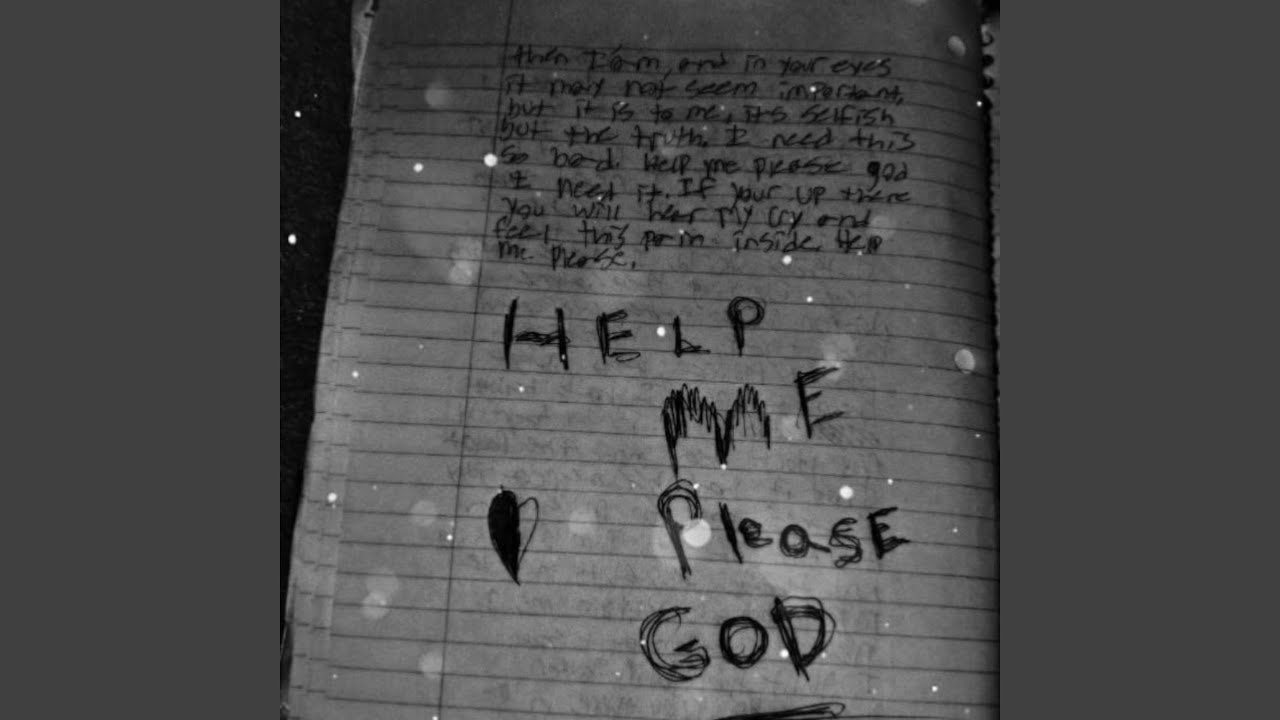 then I am, and in your eyes
it may not seem important,
but it is to me, its selfish
but the truth. I need this
so bad. Help me please god
I need it. If your up there
you will hear my cry and
feel this pain inside. Help
me please.
HELP
ME
Please
GOD